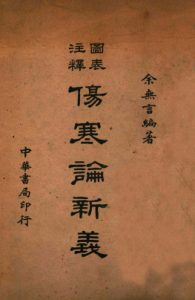 余無言編著
圖表
注釋
傷寒論新義
中華書局印行